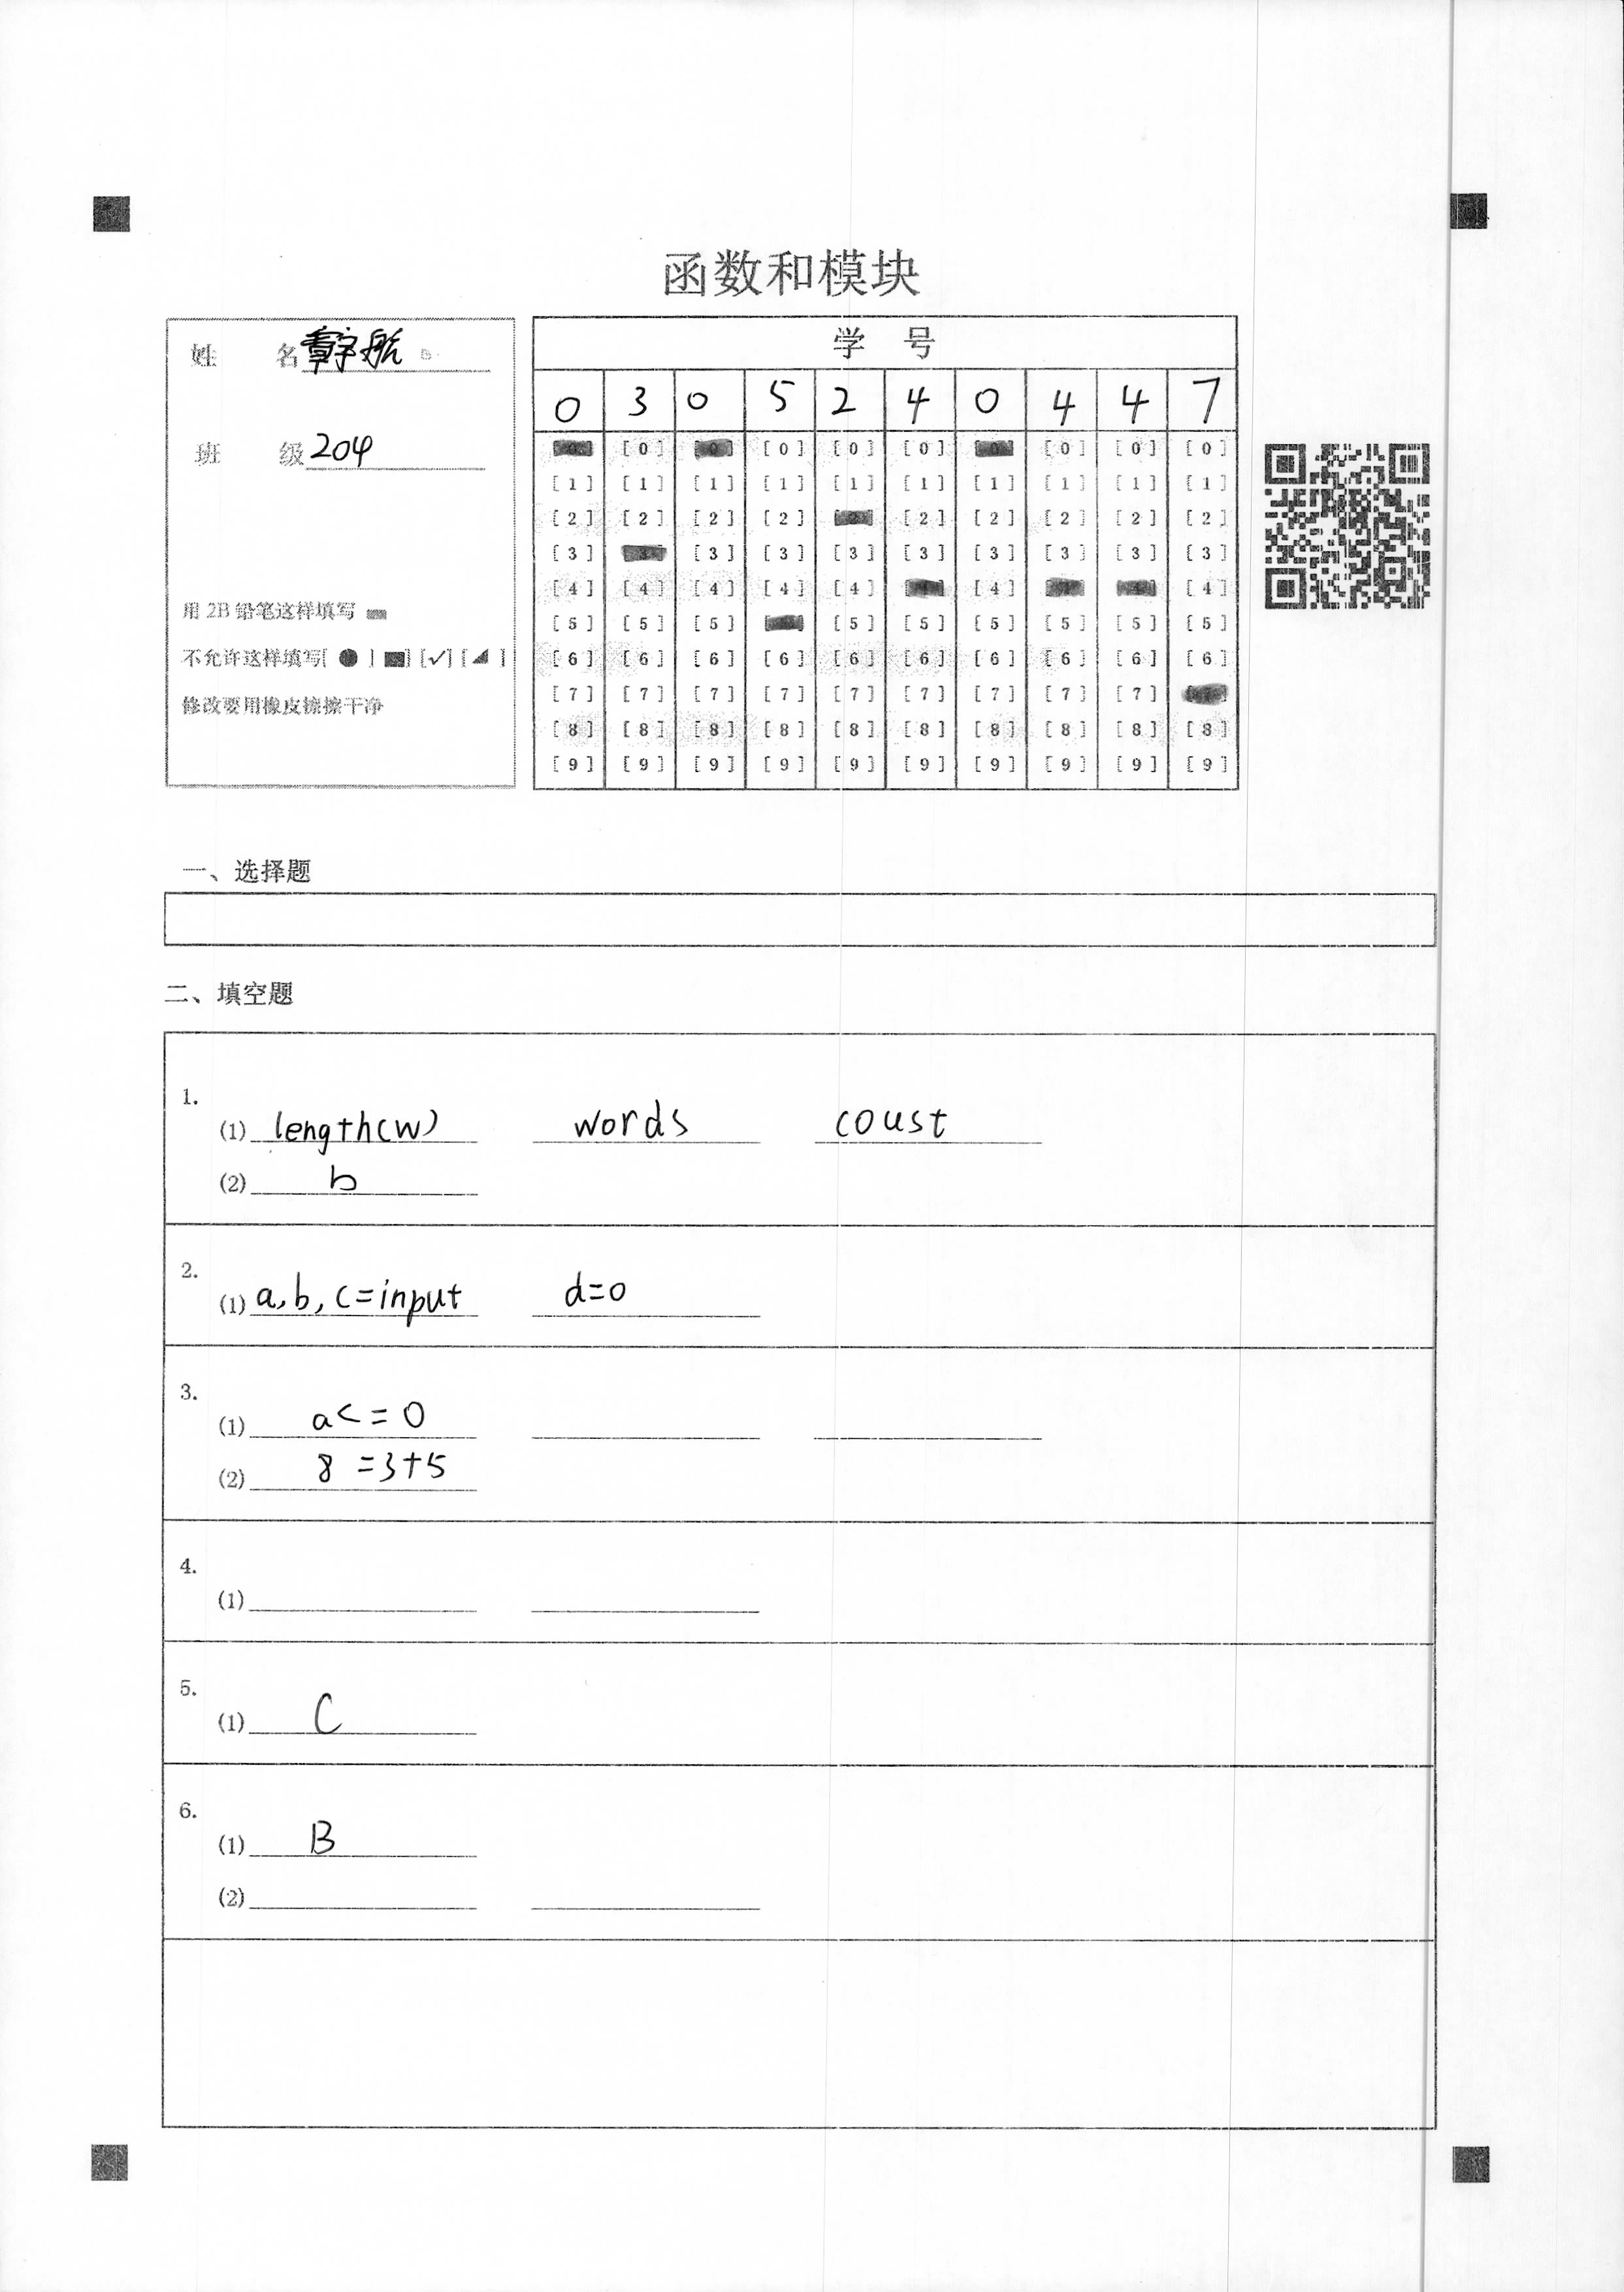 函数和模块
姓 名 章宇航
班 级 204
用 2B 铅笔这样填写
不允许这样填写[ ● ] [■] [✓] [◢ ]
修改要用橡皮擦擦干净
学 号
0 3 0 5 2 4 0 4 4 7
[0] [0] [0] [0] [0] [0] [0] [0] [0] [0]
[1] [1] [1] [1] [1] [1] [1] [1] [1] [1]
[2] [2] [2] [2] [2] [2] [2] [2] [2] [2]
[3] [3] [3] [3] [3] [3] [3] [3] [3] [3]
[4] [4] [4] [4] [4] [4] [4] [4] [4] [4]
[5] [5] [5] [5] [5] [5] [5] [5] [5] [5]
[6] [6] [6] [6] [6] [6] [6] [6] [6] [6]
[7] [7] [7] [7] [7] [7] [7] [7] [7] [7]
[8] [8] [8] [8] [8] [8] [8] [8] [8] [8]
[9] [9] [9] [9] [9] [9] [9] [9] [9] [9]
一、选择题
二、填空题
1.
(1) length(w) words coust
(2) b
2.
(1) a,b,c=input d=0
3.
(1) a<=0
(2) 8=3+5
4.
(1)
5.
(1) C
6.
(1) B
(2)